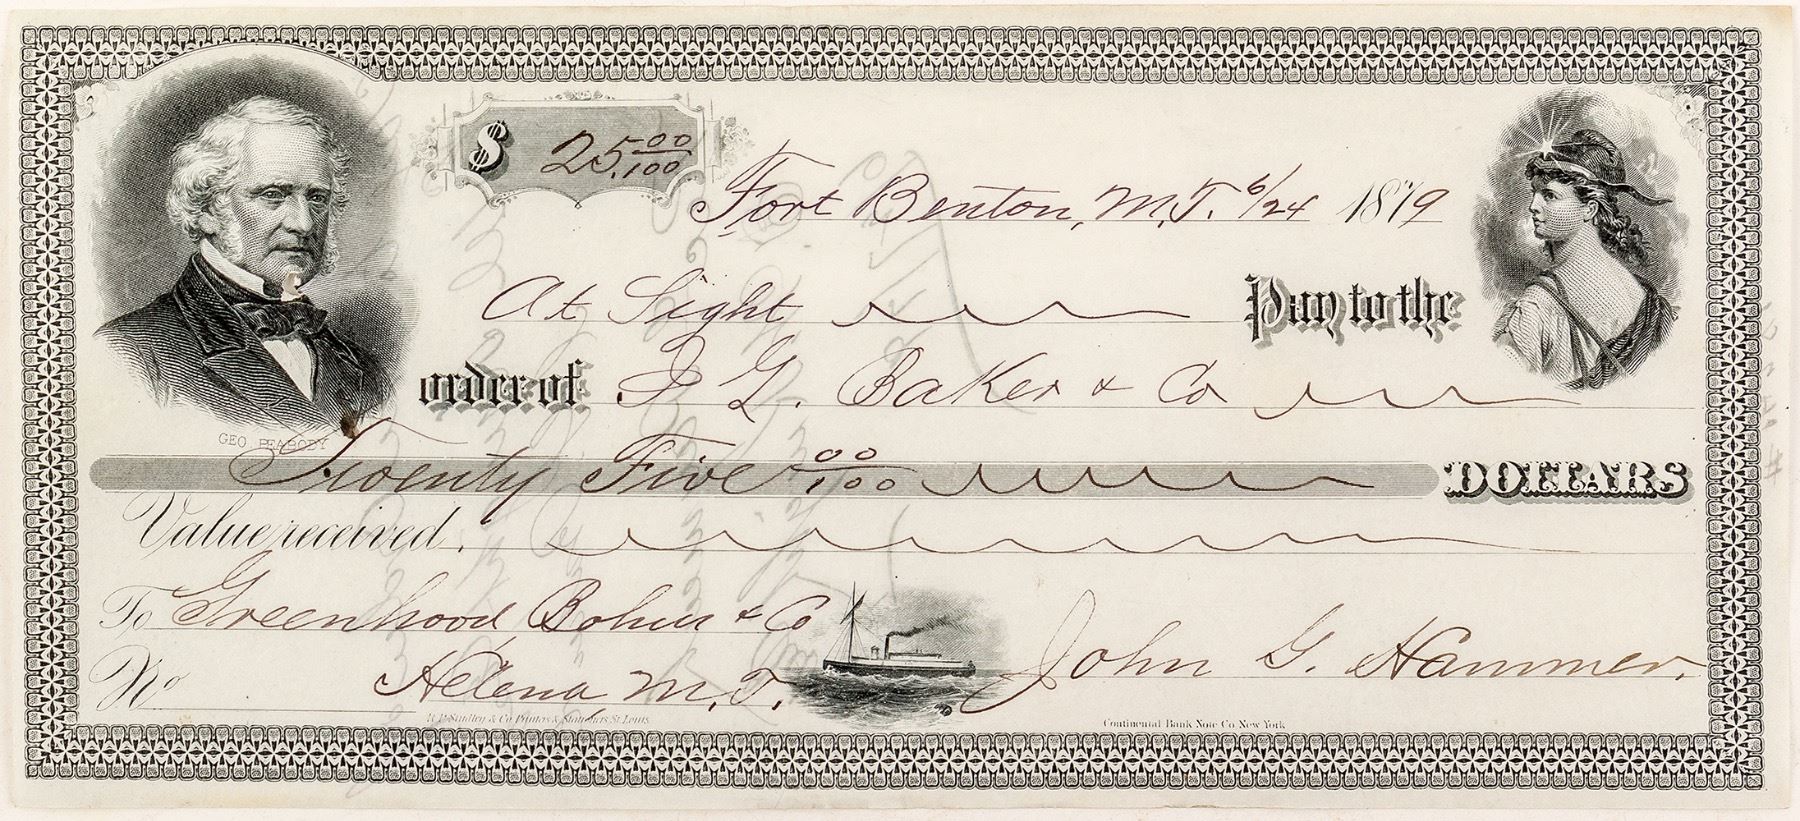 $ 25.00/100
Fort Benton, M.T. 6/24 1879
At Sight Pay to the
order of I G. Baker & Co
GEO. PEABODY
Twenty Five 00/100 DOLLARS
Value received.
To Greenhood Bohm & Co
No Helena, M.T.
John G. Hammer.
& Co. Printers & Stationers, St. Louis.
Continental Bank Note Co New York